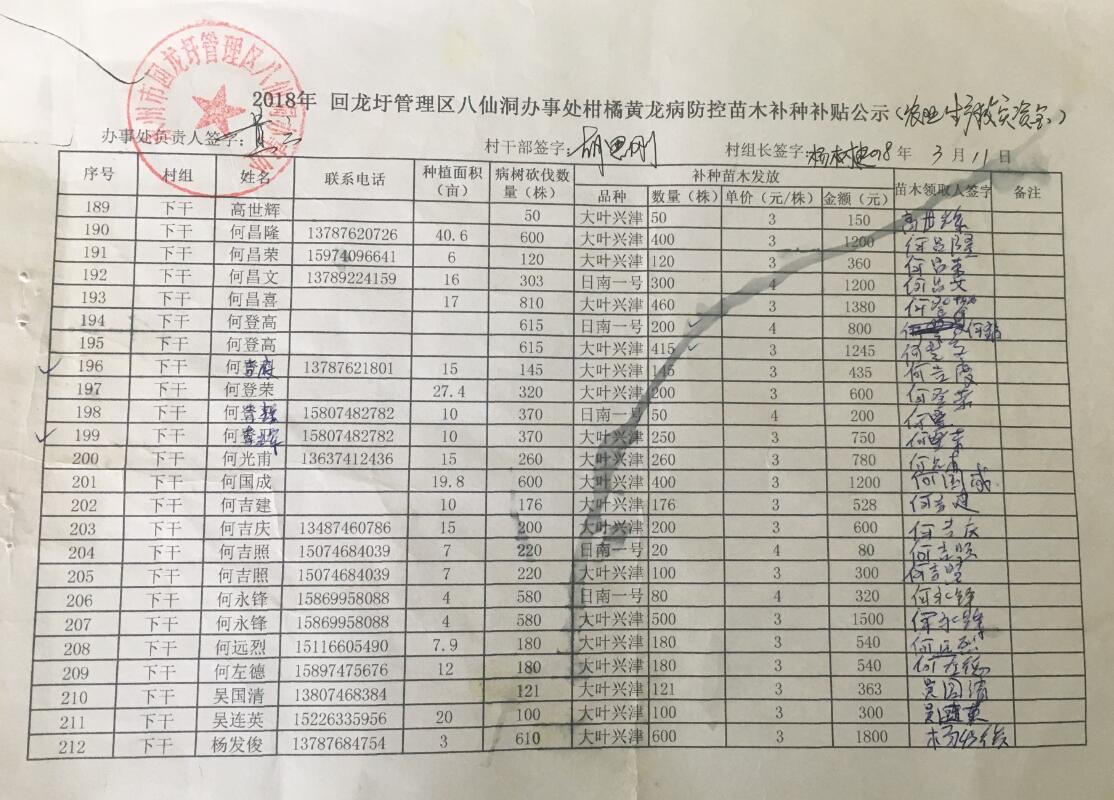 州市回龙圩管理区八仙洞办事处
2018年 回龙圩管理区八仙洞办事处柑橘黄龙病防控苗木补种补贴公示(农业生产救灾资金)
办事处负责人签字: 村干部签字: 村组长签字: 2018年 3月11日
序号 村组 姓名 联系电话 种植面积(亩) 病树砍伐数量(株) 补种苗木发放 苗木领取人签字 备注
品种 数量(株) 单价(元/株) 金额(元)
189 下干 高世辉 50 大叶兴津 50 3 150 高世辉
190 下干 何昌隆 13787620726 40.6 600 大叶兴津 400 3 1200 何昌隆
191 下干 何昌荣 15974096641 6 120 大叶兴津 120 3 360 何昌荣
192 下干 何昌文 13789224159 16 303 日南一号 300 4 1200 何昌文
193 下干 何昌喜 17 810 大叶兴津 460 3 1380 何
194 下干 何登高 615 日南一号 200 4 800 何
195 下干 何登高 615 大叶兴津 415 3 1245 何
196 下干 何 13787621801 15 145 大叶兴津 145 3 435 何
197 下干 何登荣 27.4 320 大叶兴津 200 3 600 何登荣
198 下干 何 15807482782 10 370 日南一号 50 4 200 何
199 下干 何 15807482782 10 370 大叶兴津 250 3 750 何
200 下干 何光甫 13637412436 15 260 大叶兴津 260 3 780 何光甫
201 下干 何国成 19.8 600 大叶兴津 400 3 1200 何国成
202 下干 何吉建 10 176 大叶兴津 176 3 528 何吉建
203 下干 何吉庆 13487460786 15 200 大叶兴津 200 3 600 何吉庆
204 下干 何吉照 15074684039 7 220 日南一号 20 4 80 何吉照
205 下干 何吉照 15074684039 7 220 大叶兴津 100 3 300 何吉照
206 下干 何永锋 15869958088 4 580 日南一号 80 4 320 何永锋
207 下干 何永锋 15869958088 4 580 大叶兴津 500 3 1500 何永锋
208 下干 何远烈 15116605490 7.9 180 大叶兴津 180 3 540 何远烈
209 下干 何左德 15897475676 12 180 大叶兴津 180 3 540 何左德
210 下干 吴国清 13807468384 121 大叶兴津 121 3 363 吴国清
211 下干 吴连英 15226335956 20 100 大叶兴津 100 3 300 吴连英
212 下干 杨发俊 13787684754 3 610 大叶兴津 600 3 1800 杨发俊